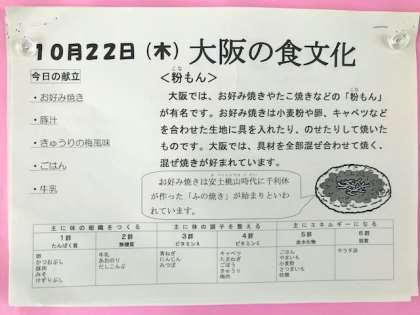 10月22日（木）大阪の食文化
今日の献立
・お好み焼き
・豚汁
・きゅうりの梅風味
・ごはん
・牛乳
＜粉もん＞
こな
大阪では、お好み焼きやたこ焼きなどの「粉もん」
が有名です。お好み焼きは小麦粉や卵、キャベツなど
を合わせた生地に具を入れたり、のせたりして焼いた
ものです。大阪では、具材を全部混ぜ合わせて焼く、
混ぜ焼きが好まれています。
お好み焼きは安土桃山時代に千利休
が作った「ふの焼き」が始まりといいわ
れています。
主に体の組織をつくる
主に体の調子を整える
主にエネルギーになる
1群
たんぱく質
2群
無機質
3群
ビタミンA
4群
ビタミンC
5群
炭水化物
6群
脂質
卵
かつおぶし
豚肉
みそ
けずりぶし
牛乳
あおのり
だしこんぶ
青ねぎ
にんじん
みつば
キャベツ
たまねぎ
ごぼう
きゅうり
梅肉
ごはん
やまいも
小麦粉
さつまいも
砂糖
サラダ油